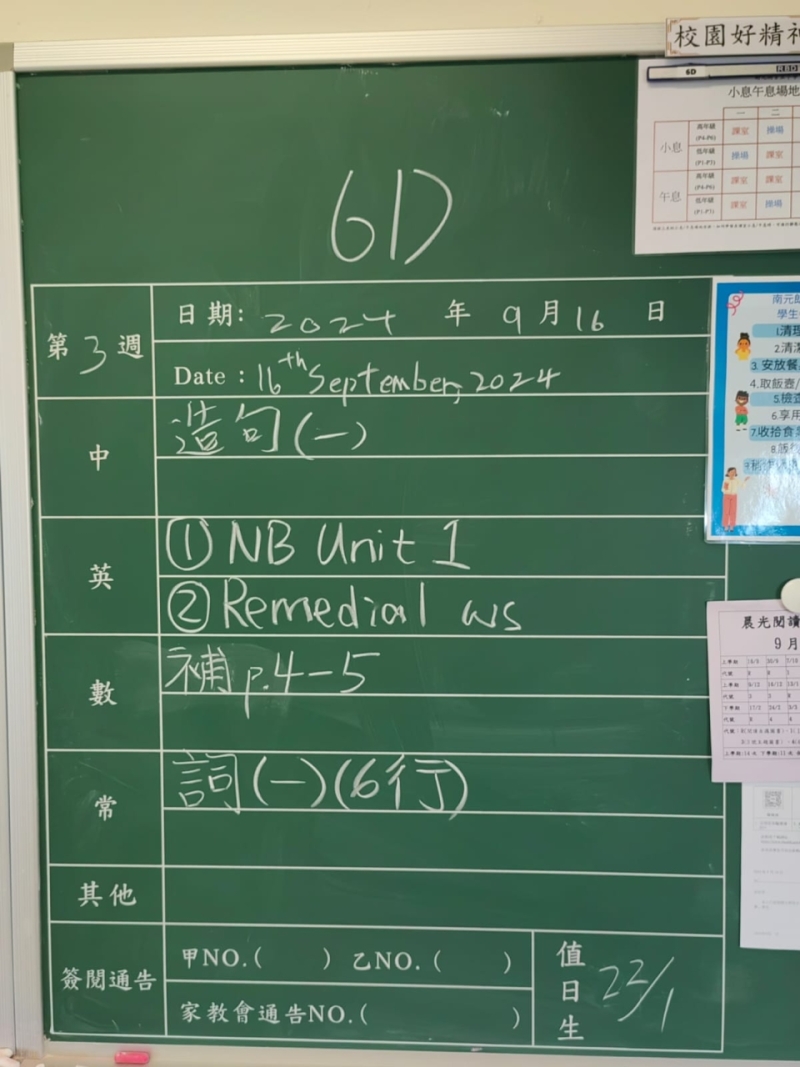 校園好精神
6D
小息午息場地
一 二
小息 高年級 (P4-P6) 課室 操場
低年級 (P1-P3) 操場 課室
午息 高年級 (P4-P6) 課室 課室
低年級 (P1-P3) 課室 操場
6D
第3週
日期: 2024 年 9月16 日
Date : 16th September, 2024
中 造句(一)
英 ① NB Unit 1
② Remedial ws
數 補 p.4-5
常 詞(一)(6行)
其他
簽閱通告 甲NO.( ) 乙NO.( )
家教會通告NO.( )
值日生 22/1
學生
1.清理
2.清潔
3. 安放餐
4.取飯壺/
5.檢查
6.享用
7.收拾食
晨光閱讀
9月